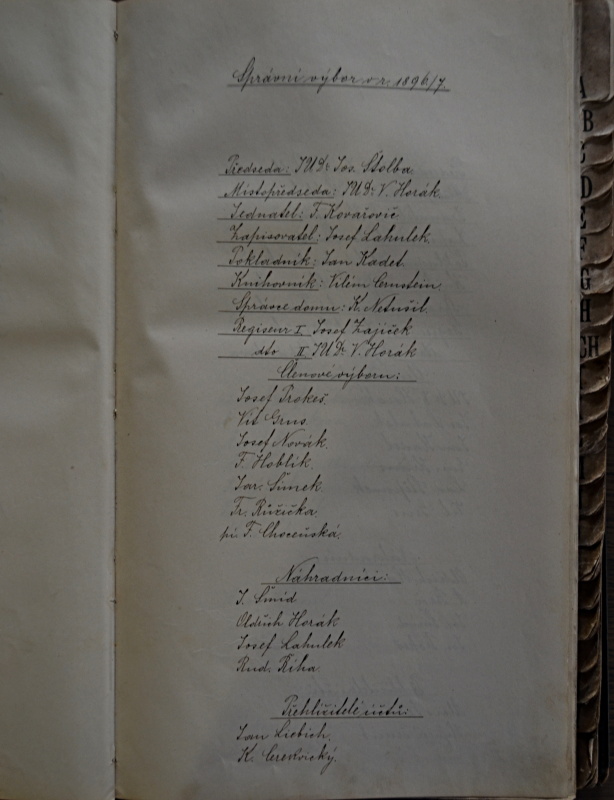 Správní výbor v r. 1896/7.
Předseda: JUDr Jos. Štolba.
Místopředseda: JUDr V. Horák.
Jednatel: F. Kovařovič
Zapisovatel: Josef Lahulek
Pokladník: Jan Kadet
Knihovník: Vilém Ernstein.
Správce domu: K. Netušil.
Regiseur I. Josef Zajíček
dto II JUDr V. Horák
Členové výboru:
Josef Prokeš.
Vít Grus.
Josef Novák.
F. Hoblík.
Jar. Šimek.
Fr. Růžička.
pí. F. Choceňská.
Náhradníci:
J. Šmíd
Oldřich Horák
Josef Lahulek
Rud. Říha.
Přehlížitelé účtů:
Jan Liebich.
K.
A
B
C
D
E
F
G
H
CH